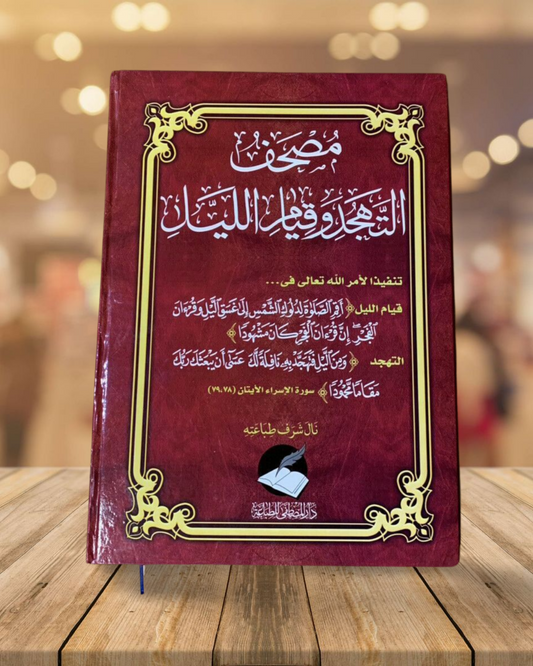 مُصْحَفُ
التَّهَجُّدِ وَقِيَامِ اللَّيْلِ
تنفيذا لأمر الله تعالى فى...
قيام الليل ﴿ أَقِمِ ٱلصَّلَوٰةَ لِدُلُوكِ ٱلشَّمْسِ إِلَىٰ غَسَقِ ٱلَّيْلِ وَقُرْءَانَ
ٱلْفَجْرِ ۖ إِنَّ قُرْءَانَ ٱلْفَجْرِ كَانَ مَشْهُودًا ﴾
التهجد ﴿ وَمِنَ ٱلَّيْلِ فَتَهَجَّدْ بِهِۦ نَافِلَةً لَّكَ عَسَىٰٓ أَن يَبْعَثَكَ رَبُّكَ
مَقَامًا مَّحْمُودًا ﴾ سورة الإسراء الأيتان (٧٩،٧٨)
نَالَ شَرَف طِبَاعَتِهِ
دار المصطفى للطباعة